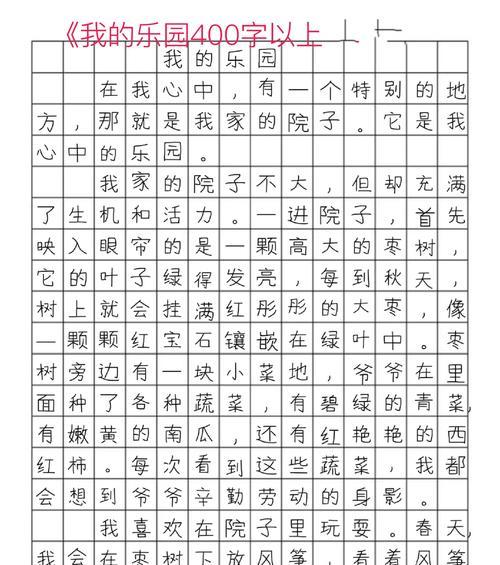 《我的乐园400字以上
我的乐园
在我心中，有一个特别的地
方，那就是我家的院子。它是我
心中的乐园。
我家的院子不大，但却充满
了生机和活力。一进院子，首先
映入眼帘的是一颗高大的枣树，
它的叶子绿得发亮，每到秋天，
树上就会挂满红彤彤的大枣，像
一颗颗红宝石镶嵌在绿叶中。枣
树旁边有一块小菜地，爷爷在里
面种了各种蔬菜，有碧绿的青菜，
有嫩黄的南瓜，还有红艳艳的西
红柿。每次看到这些蔬菜，我都
会想到爷爷辛勤劳动的身影。
我喜欢在院子里玩耍。春天，
我会在枣树下放风筝，看着风筝